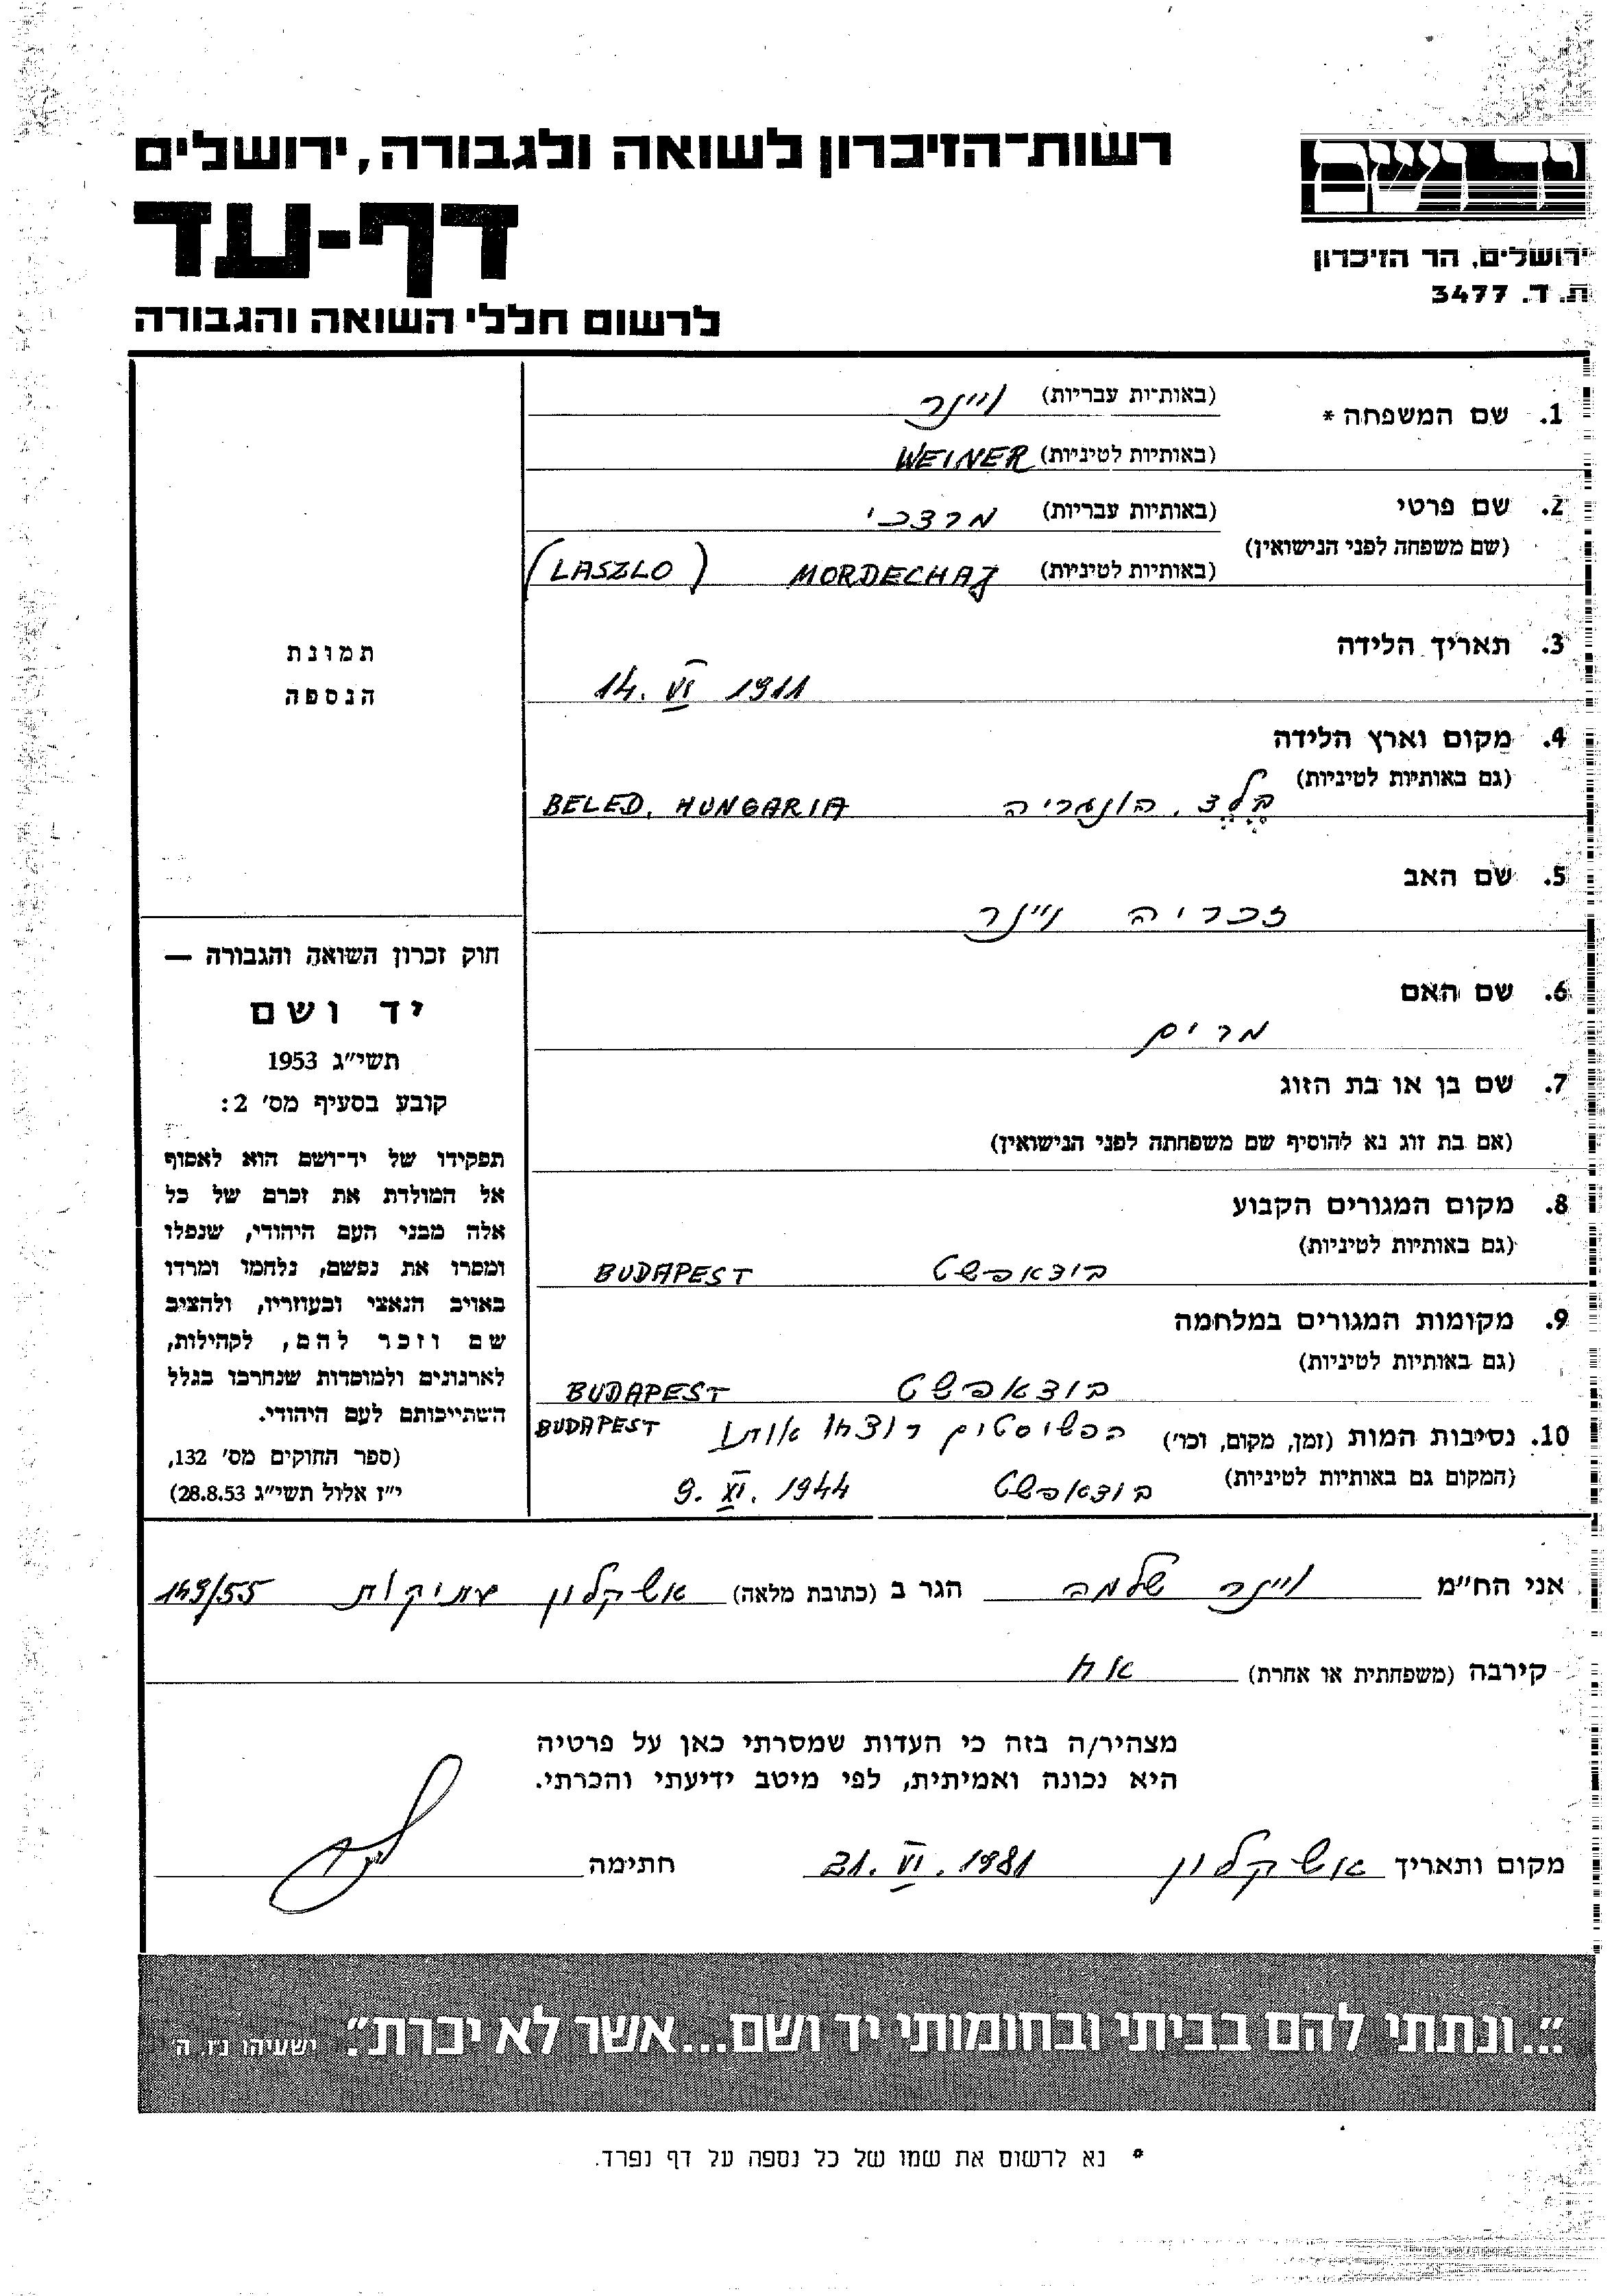 רשות־הזיכרון לשואה ולגבורה, ירושלים
יד ושם
דף-עד
ירושלים, הר הזיכרון
ת. ד. 3477
לרשום חללי השואה והגבורה
1. שם המשפחה * (באותיות עבריות) ויינר
(באותיות לטיניות) WEINER
2. שם פרטי (באותיות עבריות) מרדכי
(שם משפחה לפני הנישואין)
(באותיות לטיניות) MORDECHAJ (LASZLO)
3. תאריך הלידה
14. VI 1911
4. מקום וארץ הלידה
(גם באותיות לטיניות) בלד. הונגריה BELED, HUNGARIA
5. שם האב
זכריה ויינר
6. שם האם
מרים
7. שם בן או בת הזוג
(אם בת זוג נא להוסיף שם משפחתה לפני הנישואין)
8. מקום המגורים הקבוע
(גם באותיות לטיניות) בודאפשט BUDAPEST
9. מקומות המגורים במלחמה
(גם באותיות לטיניות) בודאפשט BUDAPEST
10. נסיבות המות (זמן, מקום, וכו') הפשיסטים רוצחו אותו BUDAPEST
(המקום גם באותיות לטיניות) בודאפשט 9. XI. 1944
תמונת
הנספה
חוק זכרון השואה והגבורה —
יד ושם
תשי״ג 1953
קובע בסעיף מס' 2:
תפקידו של יד־ושם הוא לאסוף
אל המולדת את זכרם של כל
אלה מבני העם היהודי, שנפלו
ומסרו את נפשם, נלחמו ומרדו
באויב הנאצי ובעוזריו, ולהציב
שם וזכר להם, לקהילות,
לארגונים ולמוסדות שנחרבו בגלל
השתייכותם לעם היהודי.
(ספר החוקים מס' 132,
י״ז אלול תשי״ג 28.8.53)
אני הח״מ ויינר שלמה הגר ב (כתובת מלאה) אשקלון עתיקות 149/55
קירבה (משפחתית או אחרת) אח
מצהיר/ה בזה כי העדות שמסרתי כאן על פרטיה
היא נכונה ואמיתית, לפי מיטב ידיעתי והכרתי.
מקום ותאריך אשקלון 21. VI. 1981 חתימה
״...ונתתי להם בביתי ובחומותי יד ושם...אשר לא יכרת״. ישעיהו נ״ו, ה
* נא לרשום את שמו של כל נספה על דף נפרד.